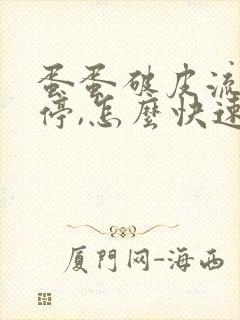 蛋蛋破皮流
停,怎麼快速
厦門网-海西